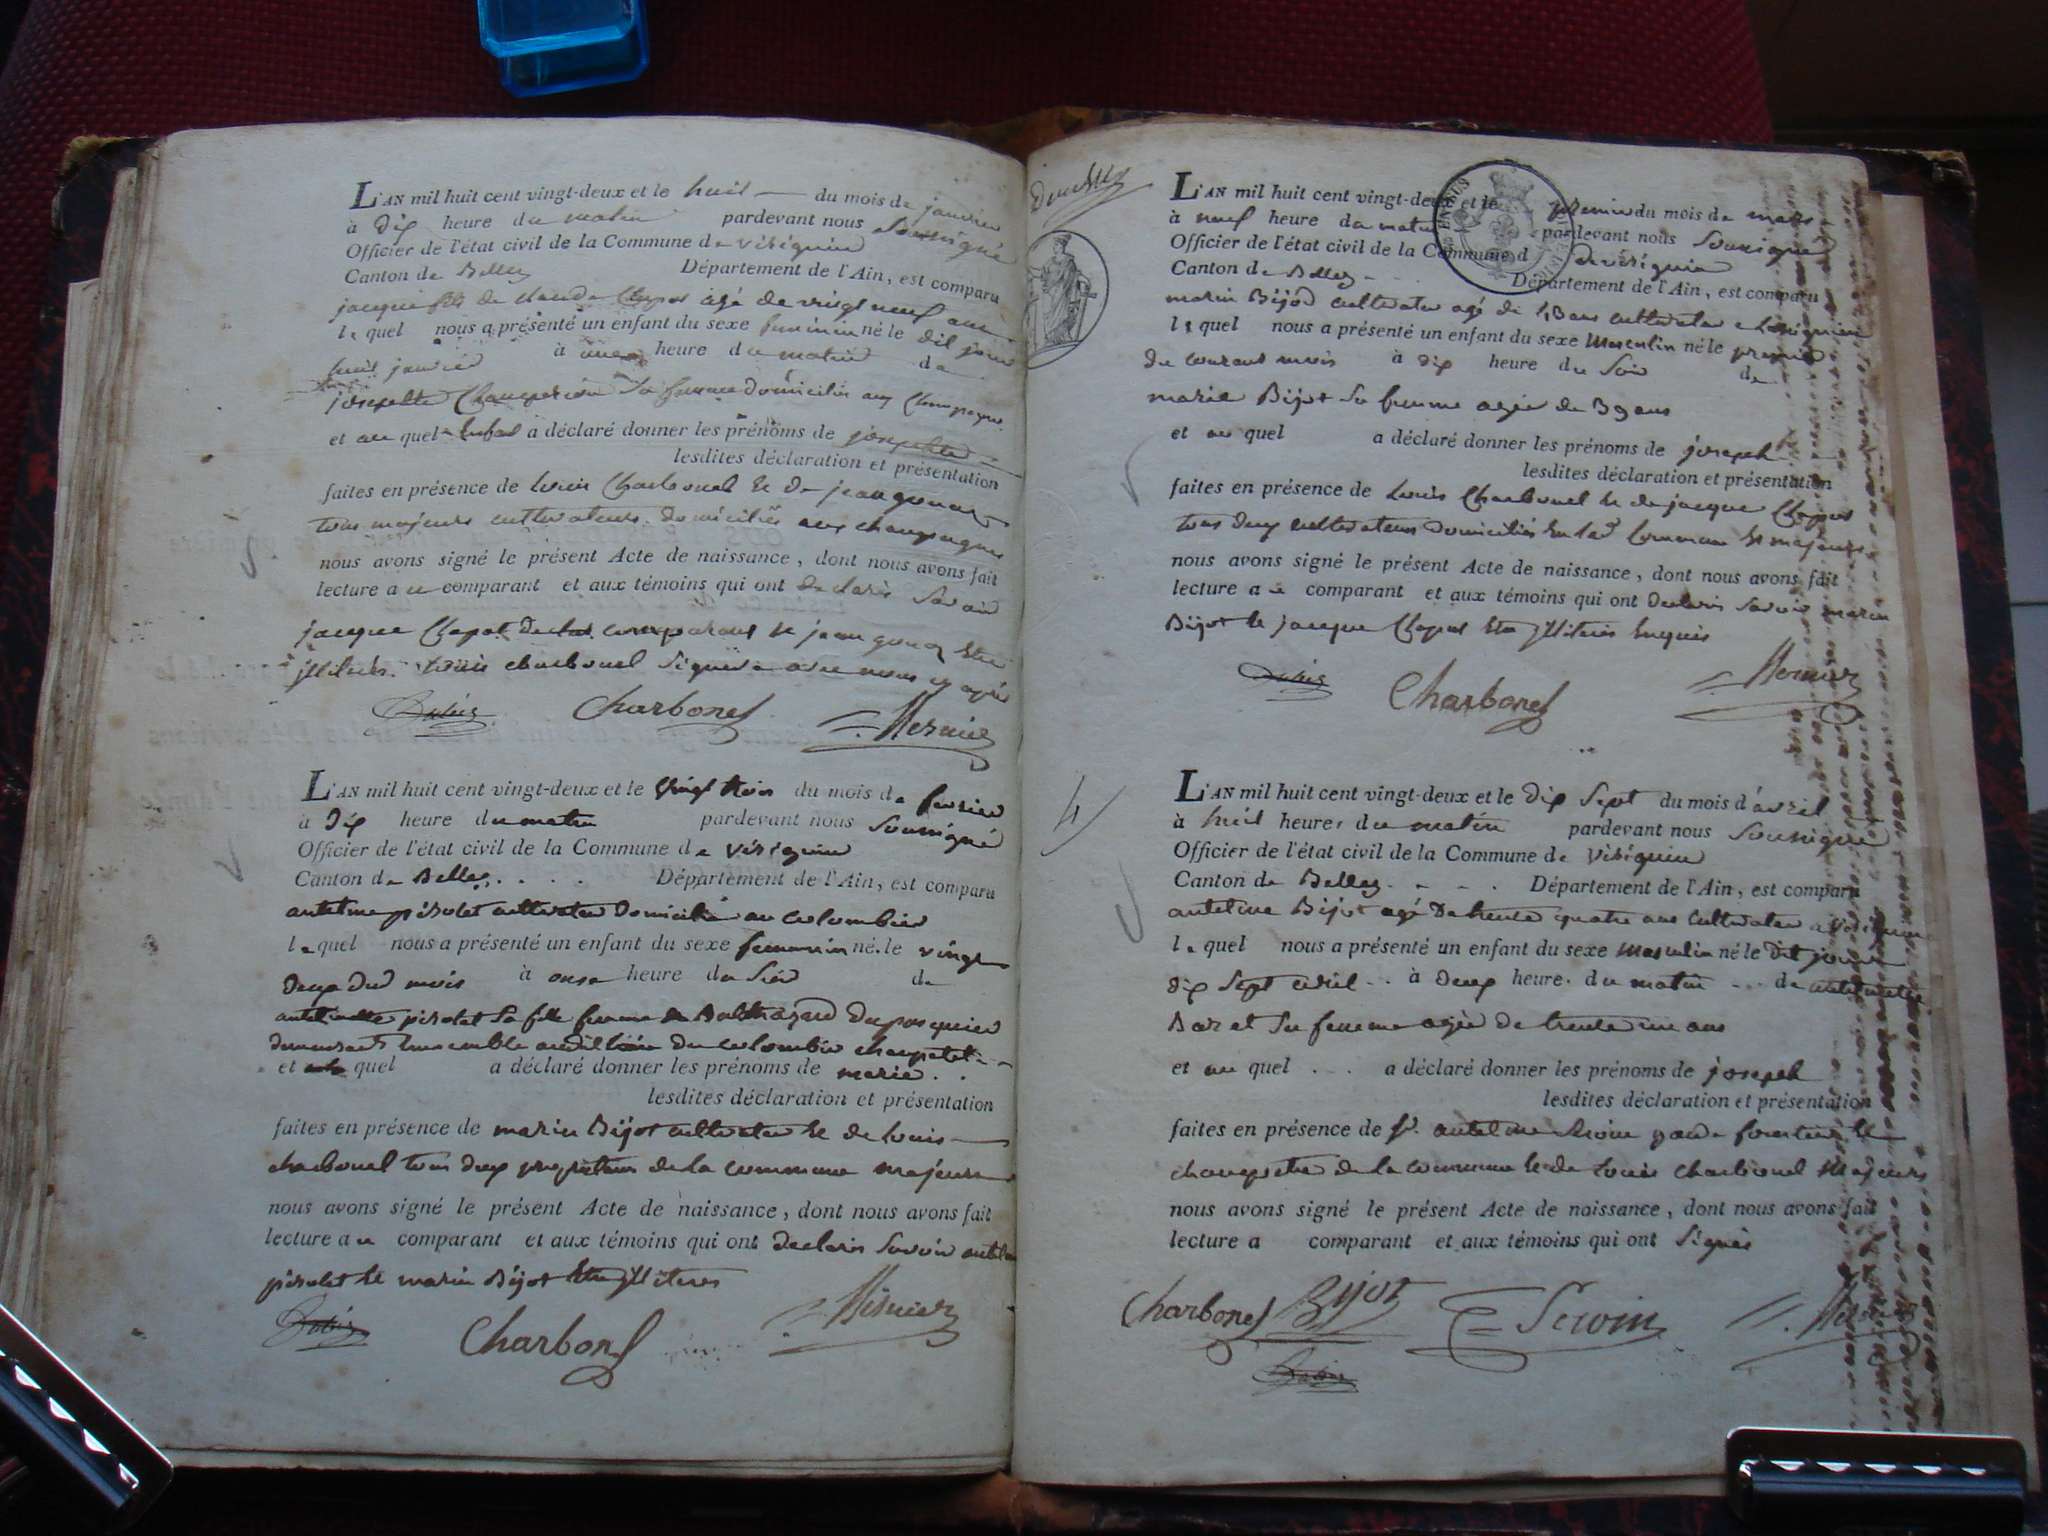 L'AN mil huit cent vingt-deux et le huit du mois de janvier
à dix heure du matin pardevant nous Soussigné
Officier de l'état civil de la Commune de vésignin
Canton de Belley Département de l'Ain, est comparu
jacque fils de claude Chapot agé de vingt neuf ans
le quel nous a présenté un enfant du sexe feminin né le dit jour
huit janvier à heure du matin de
josephte sa femme domicilié aux Champagne
et au quel enfant a déclaré donner les prénoms de josephte
lesdites déclaration et présentation
faites en présence de louis Charbonel et de jean
tous majeurs cultivateurs domiciliés aux champagnes
nous avons signé le présent Acte de naissance, dont nous avons fait
lecture a ce comparant et aux témoins qui ont declarés Savoir
jacque Chapot comparant et jean
jllitérés louis charbonel signera avec nous cy après
Dubis Charbonel Mesnier
L'AN mil huit cent vingt-deux et le vingt trois du mois de fevrier
à Dix heure du matin pardevant nous Soussigné
Officier de l'état civil de la Commune de vésignin
Canton de Belley . . . . Département de l'Ain, est comparu
antelme pérolet cultivateur domicilié au colombier
le quel nous a présenté un enfant du sexe femenin né le vingt
deux dud mois à onse heure du Soir de
pérolet sa fille femme de Balthazard dupasquier
demeurant ensemble du colombier
et quel a déclaré donner les prénoms de marie . .
lesdites déclaration et présentation
faites en présence de marin Bijot cultivateur et de louis
charbonel tous deux de la commune majeurs
nous avons signé le présent Acte de naissance, dont nous avons fait
lecture a ce comparant et aux témoins qui ont declarés Savoir antelme
pérolet et marin Bijot jlliteres
Dubis Charbonel Mesnier
L'AN mil huit cent vingt-deux et le premier du mois de mars
à neuf heure du matin pardevant nous Soussigné
Officier de l'état civil de la Commune d de vésignin
Canton de Belley Département de l'Ain, est comparu
marin Bijot cultivateur agé de 43 ans cultivateur a vésignin
le quel nous a présenté un enfant du sexe Masculin né le premier
du courant mois à dix heure du Soir de
marie Bijot sa femme agée de 39 ans
et au quel a déclaré donner les prénoms de joseph
lesdites déclaration et présentation
faites en présence de louis Charbonel et de jacque Chapot
tous deux cultivateurs domiciliés en lad Commune et majeurs
nous avons signé le présent Acte de naissance, dont nous avons fait
lecture a ce comparant et aux témoins qui ont declarés savoir marin
Bijot et jacque Chapot jlliterés enquis
Dubis Charbonel Mesnier
4
L'AN mil huit cent vingt-deux et le dix sept du mois d'avril
à huit heures du matin pardevant nous Soussigné
Officier de l'état civil de la Commune de vésignin
Canton de Belley . . . Département de l'Ain, est comparu
antelme Bijot agé de trente quatre ans cultivateur a vésignin
le quel nous a présenté un enfant du sexe masculin né le dit jour
dix sept avril . . à deux heure. du matin . . . de antelmette
sa femme agée de trente un ans
et au quel . . . a déclaré donner les prénoms de joseph
lesdites déclaration et présentation
faites en présence de Sr. antelme garde forestier et
champetre de la commune et de louis charbonel majeurs
nous avons signé le présent Acte de naissance, dont nous avons fait
lecture a comparant et aux témoins qui ont Signés
Charbonel Bijot Mesnier
Dubis